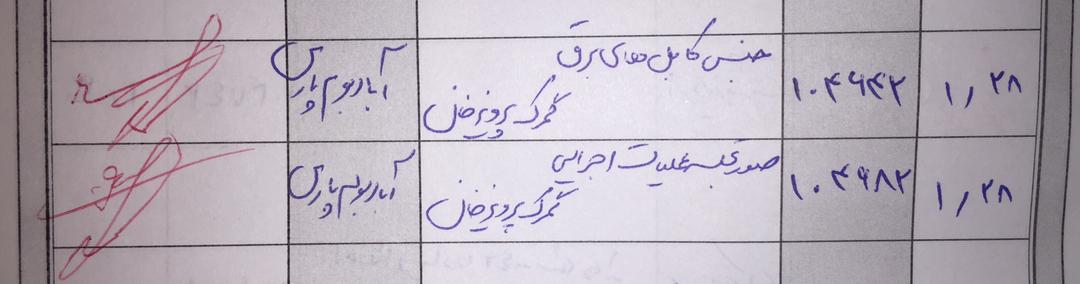 ۱,۲۸ ۱۰۴۶۴۲ جنس کابل های برق گمرک پرویزخان آبادبوم پارس
۱,۲۸ ۱۰۴۶۸۲ صورتجلسه عملیات اجرایی گمرک پرویزخان آبادبوم پارس